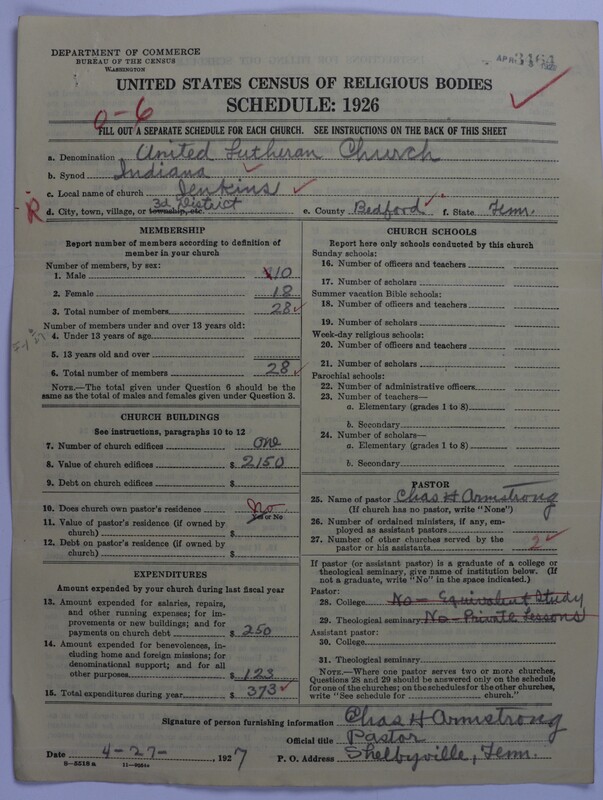 DEPARTMENT OF COMMERCE
BUREAU OF THE CENSUS
WASHINGTON
APR 3464
UNITED STATES CENSUS OF RELIGIOUS BODIES
SCHEDULE: 1926
0-6
FILL OUT A SEPARATE SCHEDULE FOR EACH CHURCH. SEE INSTRUCTIONS ON THE BACK OF THIS SHEET
a. Denomination United Lutheran Church
b. Synod Indiana
c. Local name of church Jenkins
R d. City, town, village, or township, etc. 3d District e. County Bedford f. State Tenn.
MEMBERSHIP
Report number of members according to definition of member in your church
Number of members, by sex:
1. Male 10
2. Female 18
3. Total number of members 28
Number of members under and over 13 years old:
4. Under 13 years of age
5. 13 years old and over
6. Total number of members 28
NOTE.—The total given under Question 6 should be the same as the total of males and females given under Question 3.
CHURCH BUILDINGS
See instructions, paragraphs 10 to 12
7. Number of church edifices One
8. Value of church edifices $ 2150
9. Debt on church edifices $
10. Does church own pastor's residence No
Yes or No
11. Value of pastor's residence (if owned by church) $
12. Debt on pastor's residence (if owned by church) $
EXPENDITURES
Amount expended by your church during last fiscal year
13. Amount expended for salaries, repairs, and other running expenses; for improvements or new buildings; and for payments on church debt $ 250
14. Amount expended for benevolences, including home and foreign missions; for denominational support; and for all other purposes $ 123
15. Total expenditures during year $ 373
CHURCH SCHOOLS
Report here only schools conducted by this church
Sunday schools:
16. Number of officers and teachers
17. Number of scholars
Summer vacation Bible schools:
18. Number of officers and teachers
19. Number of scholars
Week-day religious schools:
20. Number of officers and teachers
21. Number of scholars
Parochial schools:
22. Number of administrative officers
23. Number of teachers—
a. Elementary (grades 1 to 8)
b. Secondary
24. Number of scholars—
a. Elementary (grades 1 to 8)
b. Secondary
PASTOR
25. Name of pastor Chas H Armstrong
(If church has no pastor, write "None")
26. Number of ordained ministers, if any, employed as assistant pastors
27. Number of other churches served by the pastor or his assistants 2
If pastor (or assistant pastor) is a graduate of a college or theological seminary, give name of institution below. (If not a graduate, write "No" in the space indicated.)
Pastor:
28. College No - Equivalent Study
29. Theological seminary No - Private Lessons
Assistant pastor:
30. College
31. Theological seminary
NOTE.—Where one pastor serves two or more churches, Questions 28 and 29 should be answered only on the schedule for one of the churches; on the schedules for the other churches, write "See schedule for church."
Signature of person furnishing information Chas H Armstrong
Official title Pastor
Date 4-27-, 1927 P. O. Address Shelbyville, Tenn.